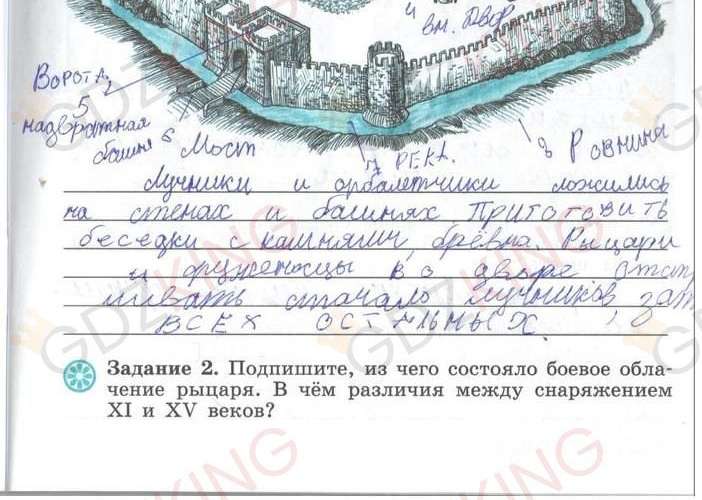 и
вн. двор
Ворота
5
надвратная
башня 6 Мост
7 РЕКА.
8 Равнина
Лучники и арбалетчики ложились
на стенах и башнях. Приготовить
беседки с камнями, брёвна. Рыцари
и оруженосцы во дворе.
сначало лучников, зат
ВСЕХ ОСТАЛЬНЫХ.
Задание 2. Подпишите, из чего состояло боевое обла-
чение рыцаря. В чём различия между снаряжением
XI и XV веков?
GDZKING